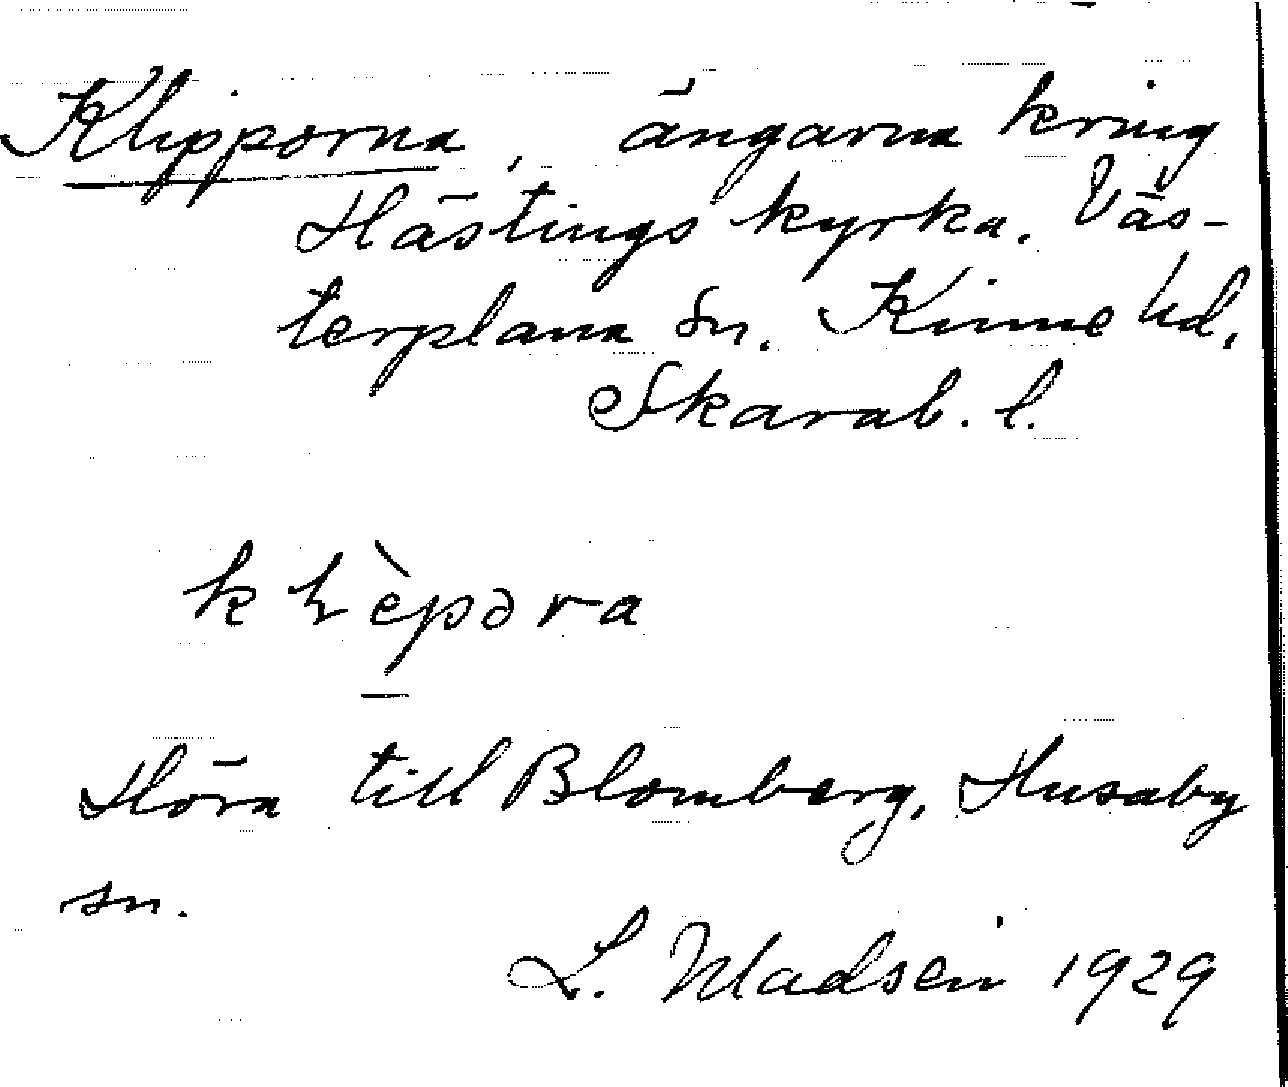 Klipporna, ängarna kring
Hästings kyrka. Väs-
terplana sn. Kinne hd,
Skarab. l.
klèpəra
Höra till Blomberg, Husaby
sn.
L. Madsén 1929